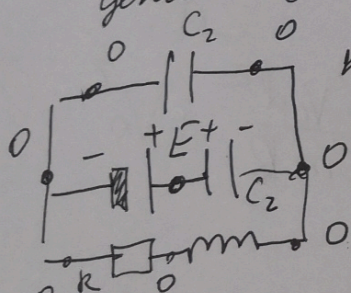 0 C₂ 0
0 + E + -
- C₂ 0
R 0 0